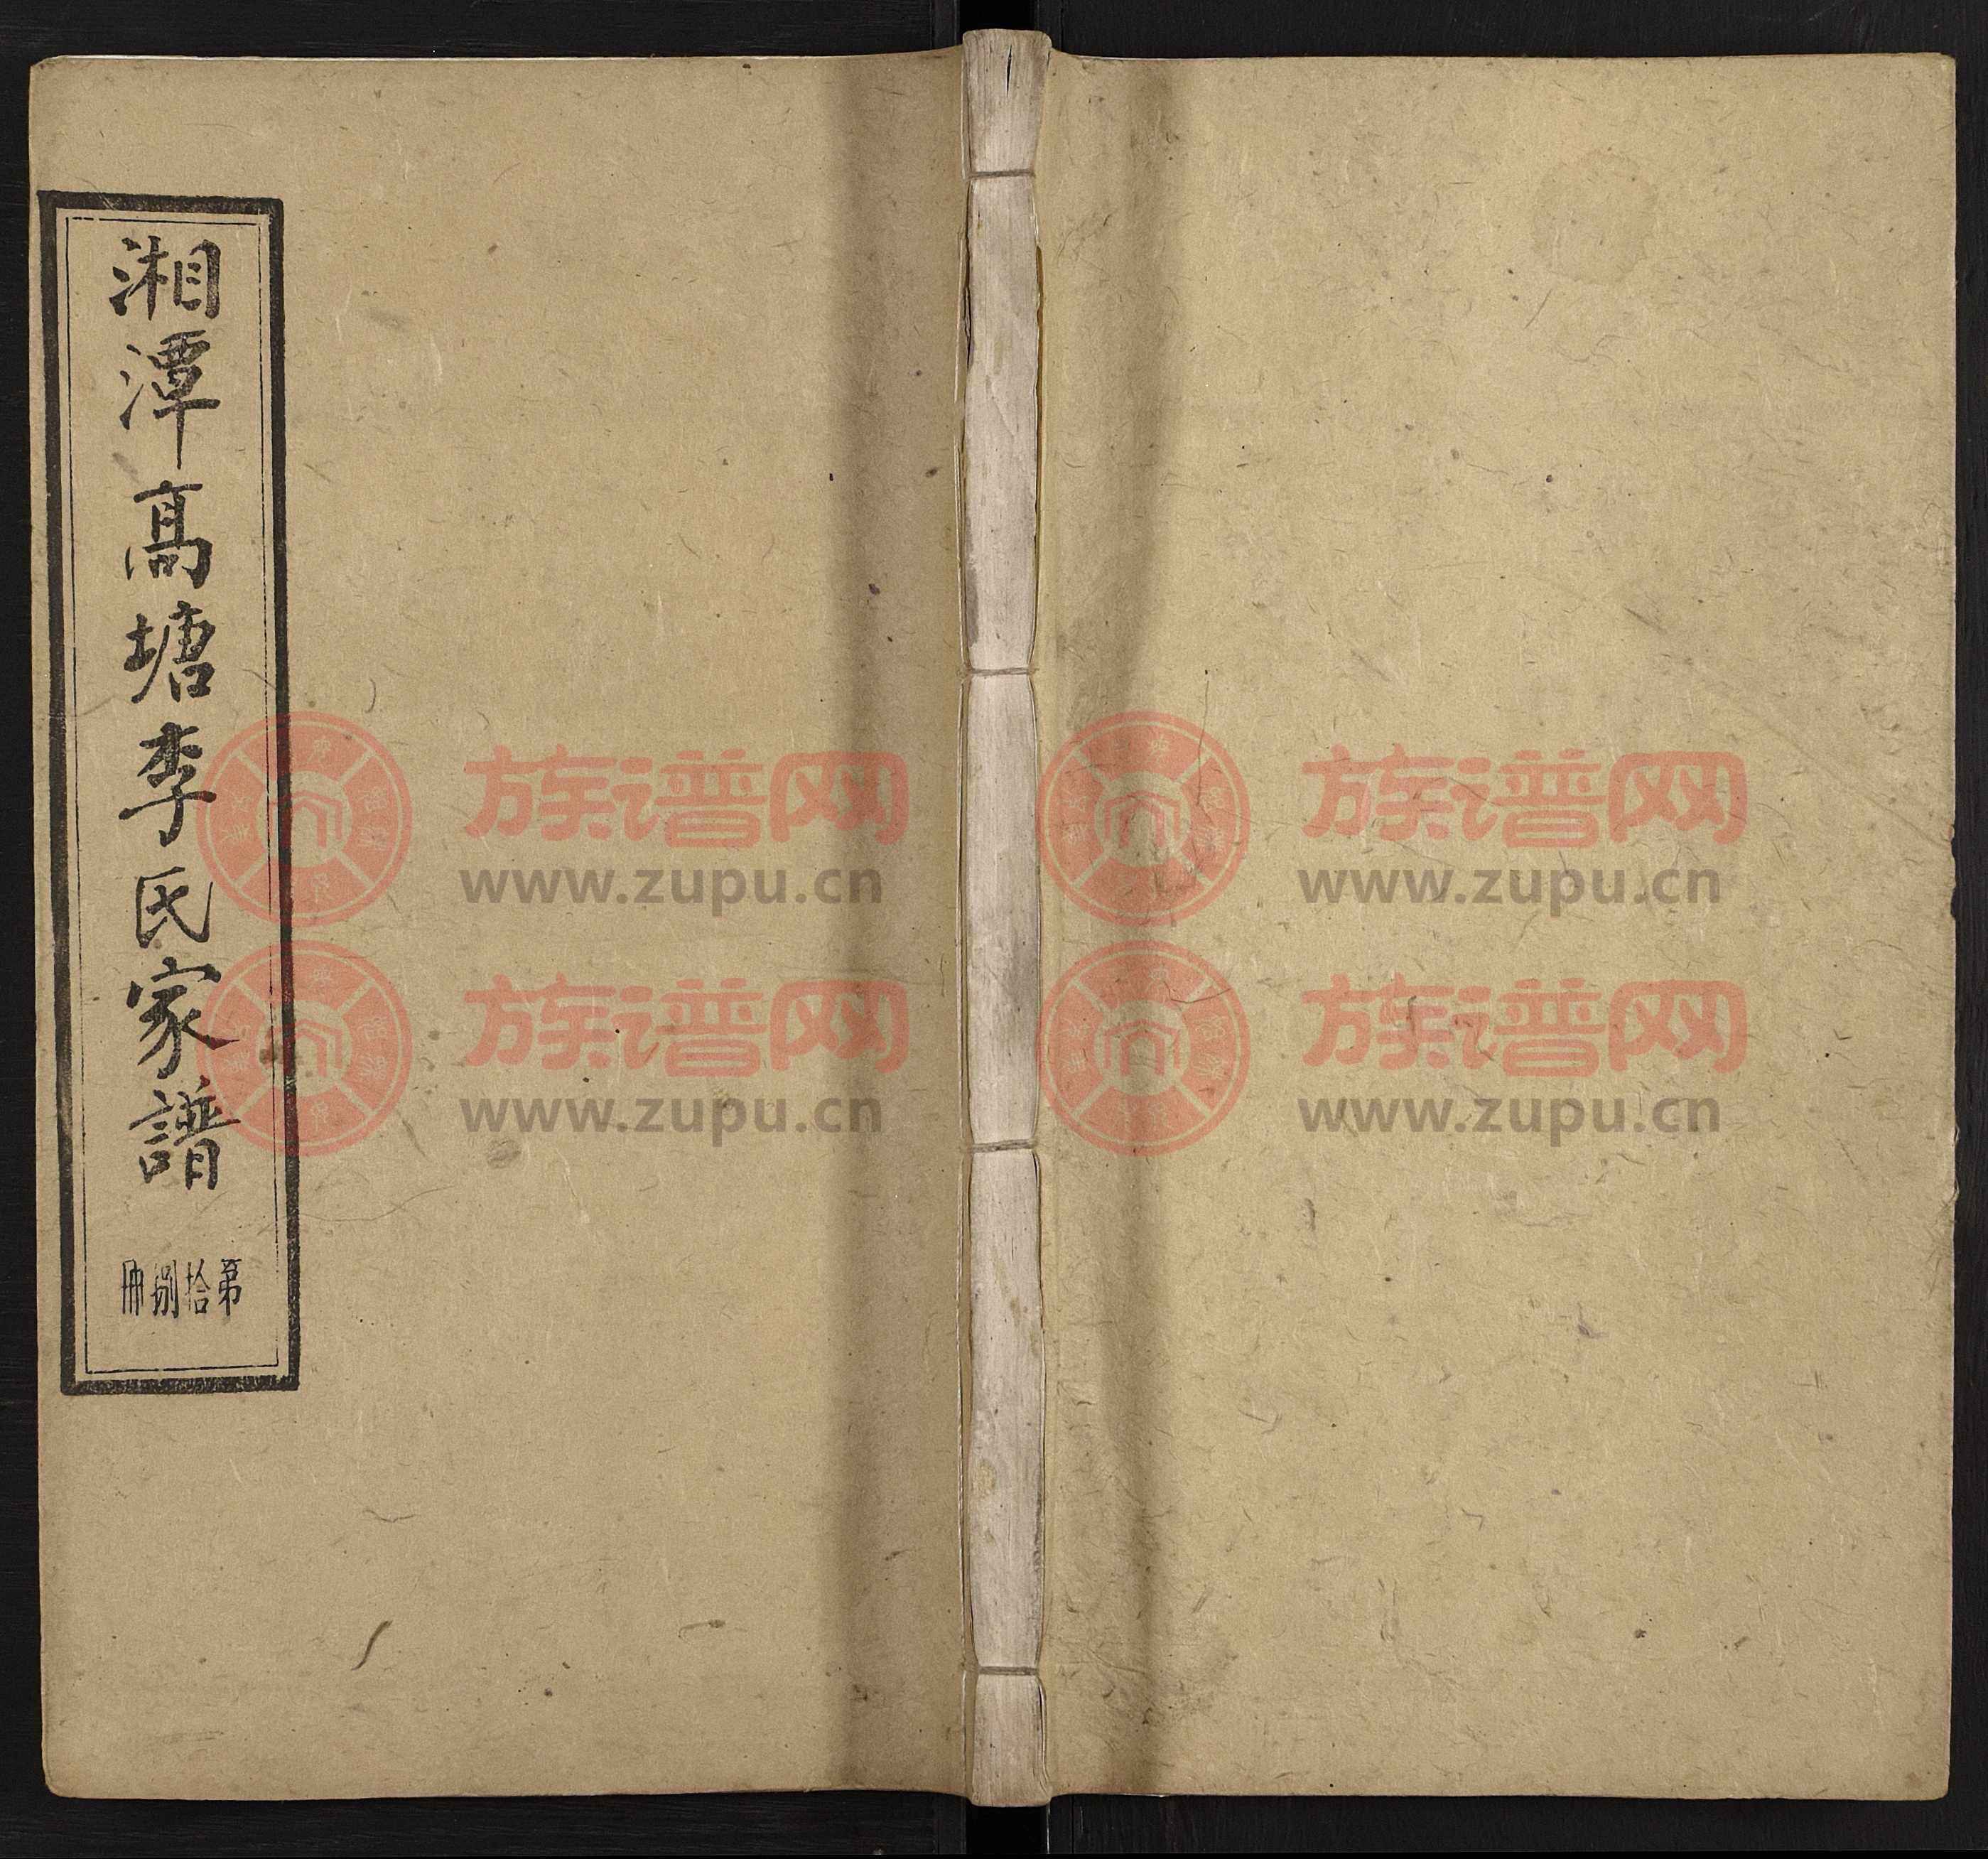 湘潭高塘李氏家譜
第拾捌冊
族谱网
www.zupu.cn
族谱网
www.zupu.cn
族谱网
www.zupu.cn
族谱网
www.zupu.cn